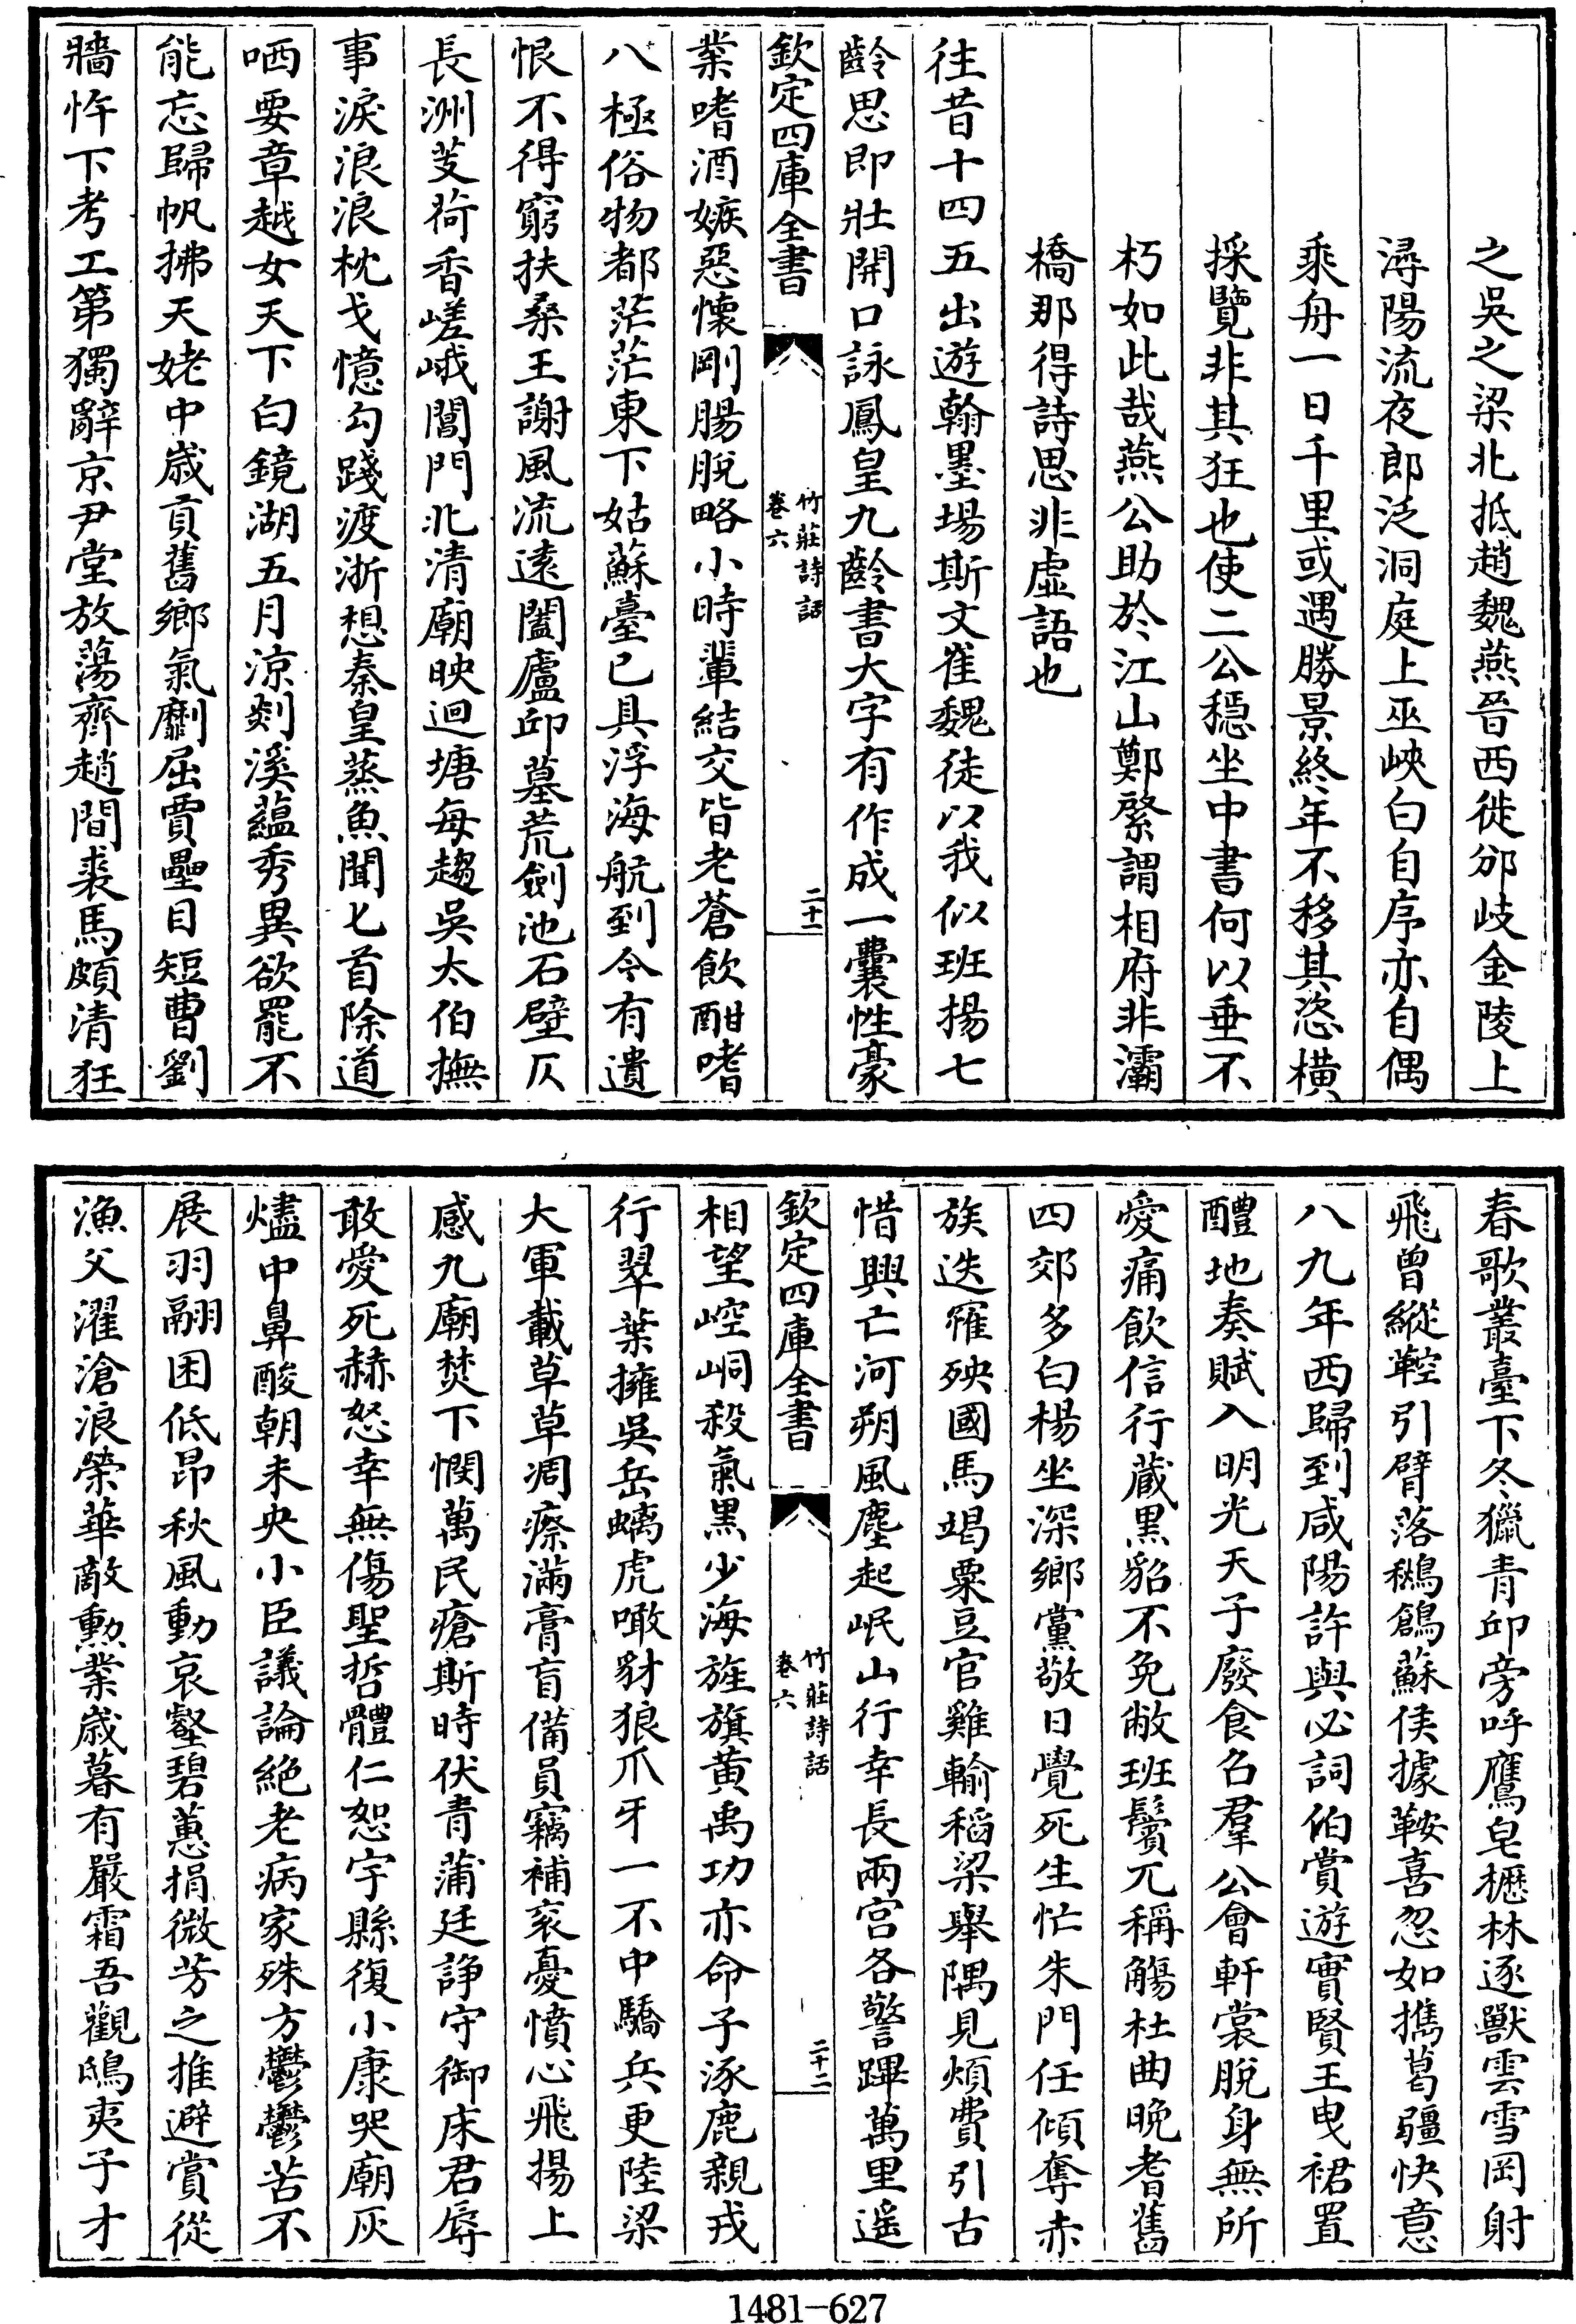 之吳之梁北抵趙魏燕晉西徙邠岐金陵上
潯陽流夜郎泛洞庭上巫峽白自序亦自偶
乘舟一日千里或遇勝景終年不移其恣橫
採覽非其狂也使二公穩坐中書何以垂不
朽如此哉燕公助於江山鄭綮謂相府非灞
橋那得詩思非虛語也
往昔十四五出遊翰墨場斯文崔魏徒以我似班揚七
齡思即壯開口詠鳳皇九齡書大字有作成一囊性豪
欽定四庫全書
竹莊詩話
卷六
二十一
業嗜酒嫉惡懷剛腸脫略小時輩結交皆老蒼飲酣嗜
八極俗物都茫茫東下姑蘇臺已具浮海航到今有遺
恨不得窮扶桑王謝風流遠闔廬邱墓荒劍池石壁仄
長洲芰荷香嵯峨閶門北清廟映迴塘每趨吳太伯撫
事淚浪浪枕戈憶勾踐渡浙想秦皇蒸魚聞匕首除道
哂要章越女天下白鏡湖五月涼剡溪蘊秀異欲罷不
能忘歸帆拂天姥中歲貢舊鄉氣劘屈賈壘目短曹劉
牆忤下考工第獨辭京尹堂放蕩齊趙間裘馬頗清狂
春歌叢臺下冬獵青邱旁呼鷹皂櫪林逐獸雲雪岡射
飛曾縱鞚引臂落鶖鶬蘇侯據鞍喜忽如攜葛彊快意
八九年西歸到咸陽許與必詞伯賞遊實賢王曳裾置
醴地奏賦入明光天子廢食召羣公會軒裳脫身無所
愛痛飲信行藏黑貂不免敝班鬢兀稱觴杜曲晚耆舊
四郊多白楊坐深鄉黨敬日覺死生忙朱門任傾奪赤
族迭罹殃國馬竭粟豆官雞輸稻粱舉隅見煩費引古
惜興亡河朔風塵起岷山行幸長兩宮各警蹕萬里遥
欽定四庫全書
竹莊詩話
卷六
二十二
相望崆峒殺氣黑少海旌旗黃禹功亦命子涿鹿親戎
行翠葉擁吳岳螭虎噉豺狼爪牙一不中驕兵更陸梁
大軍載草草凋瘵滿膏肓備員竊補衮憂憤心飛揚上
感九廟焚下憫萬民瘡斯時伏青蒲廷諍守御床君辱
敢愛死赫怒幸無傷聖哲體仁恕宇縣復小康哭廟灰
燼中鼻酸朝未央小臣議論絶老病家殊方鬱鬱苦不
展羽翮困低昂秋風動哀壑碧蕙捐微芳之推避賞從
漁父濯滄浪榮華敵勲業歲暮有嚴霜吾觀鴟夷子才
1481-627